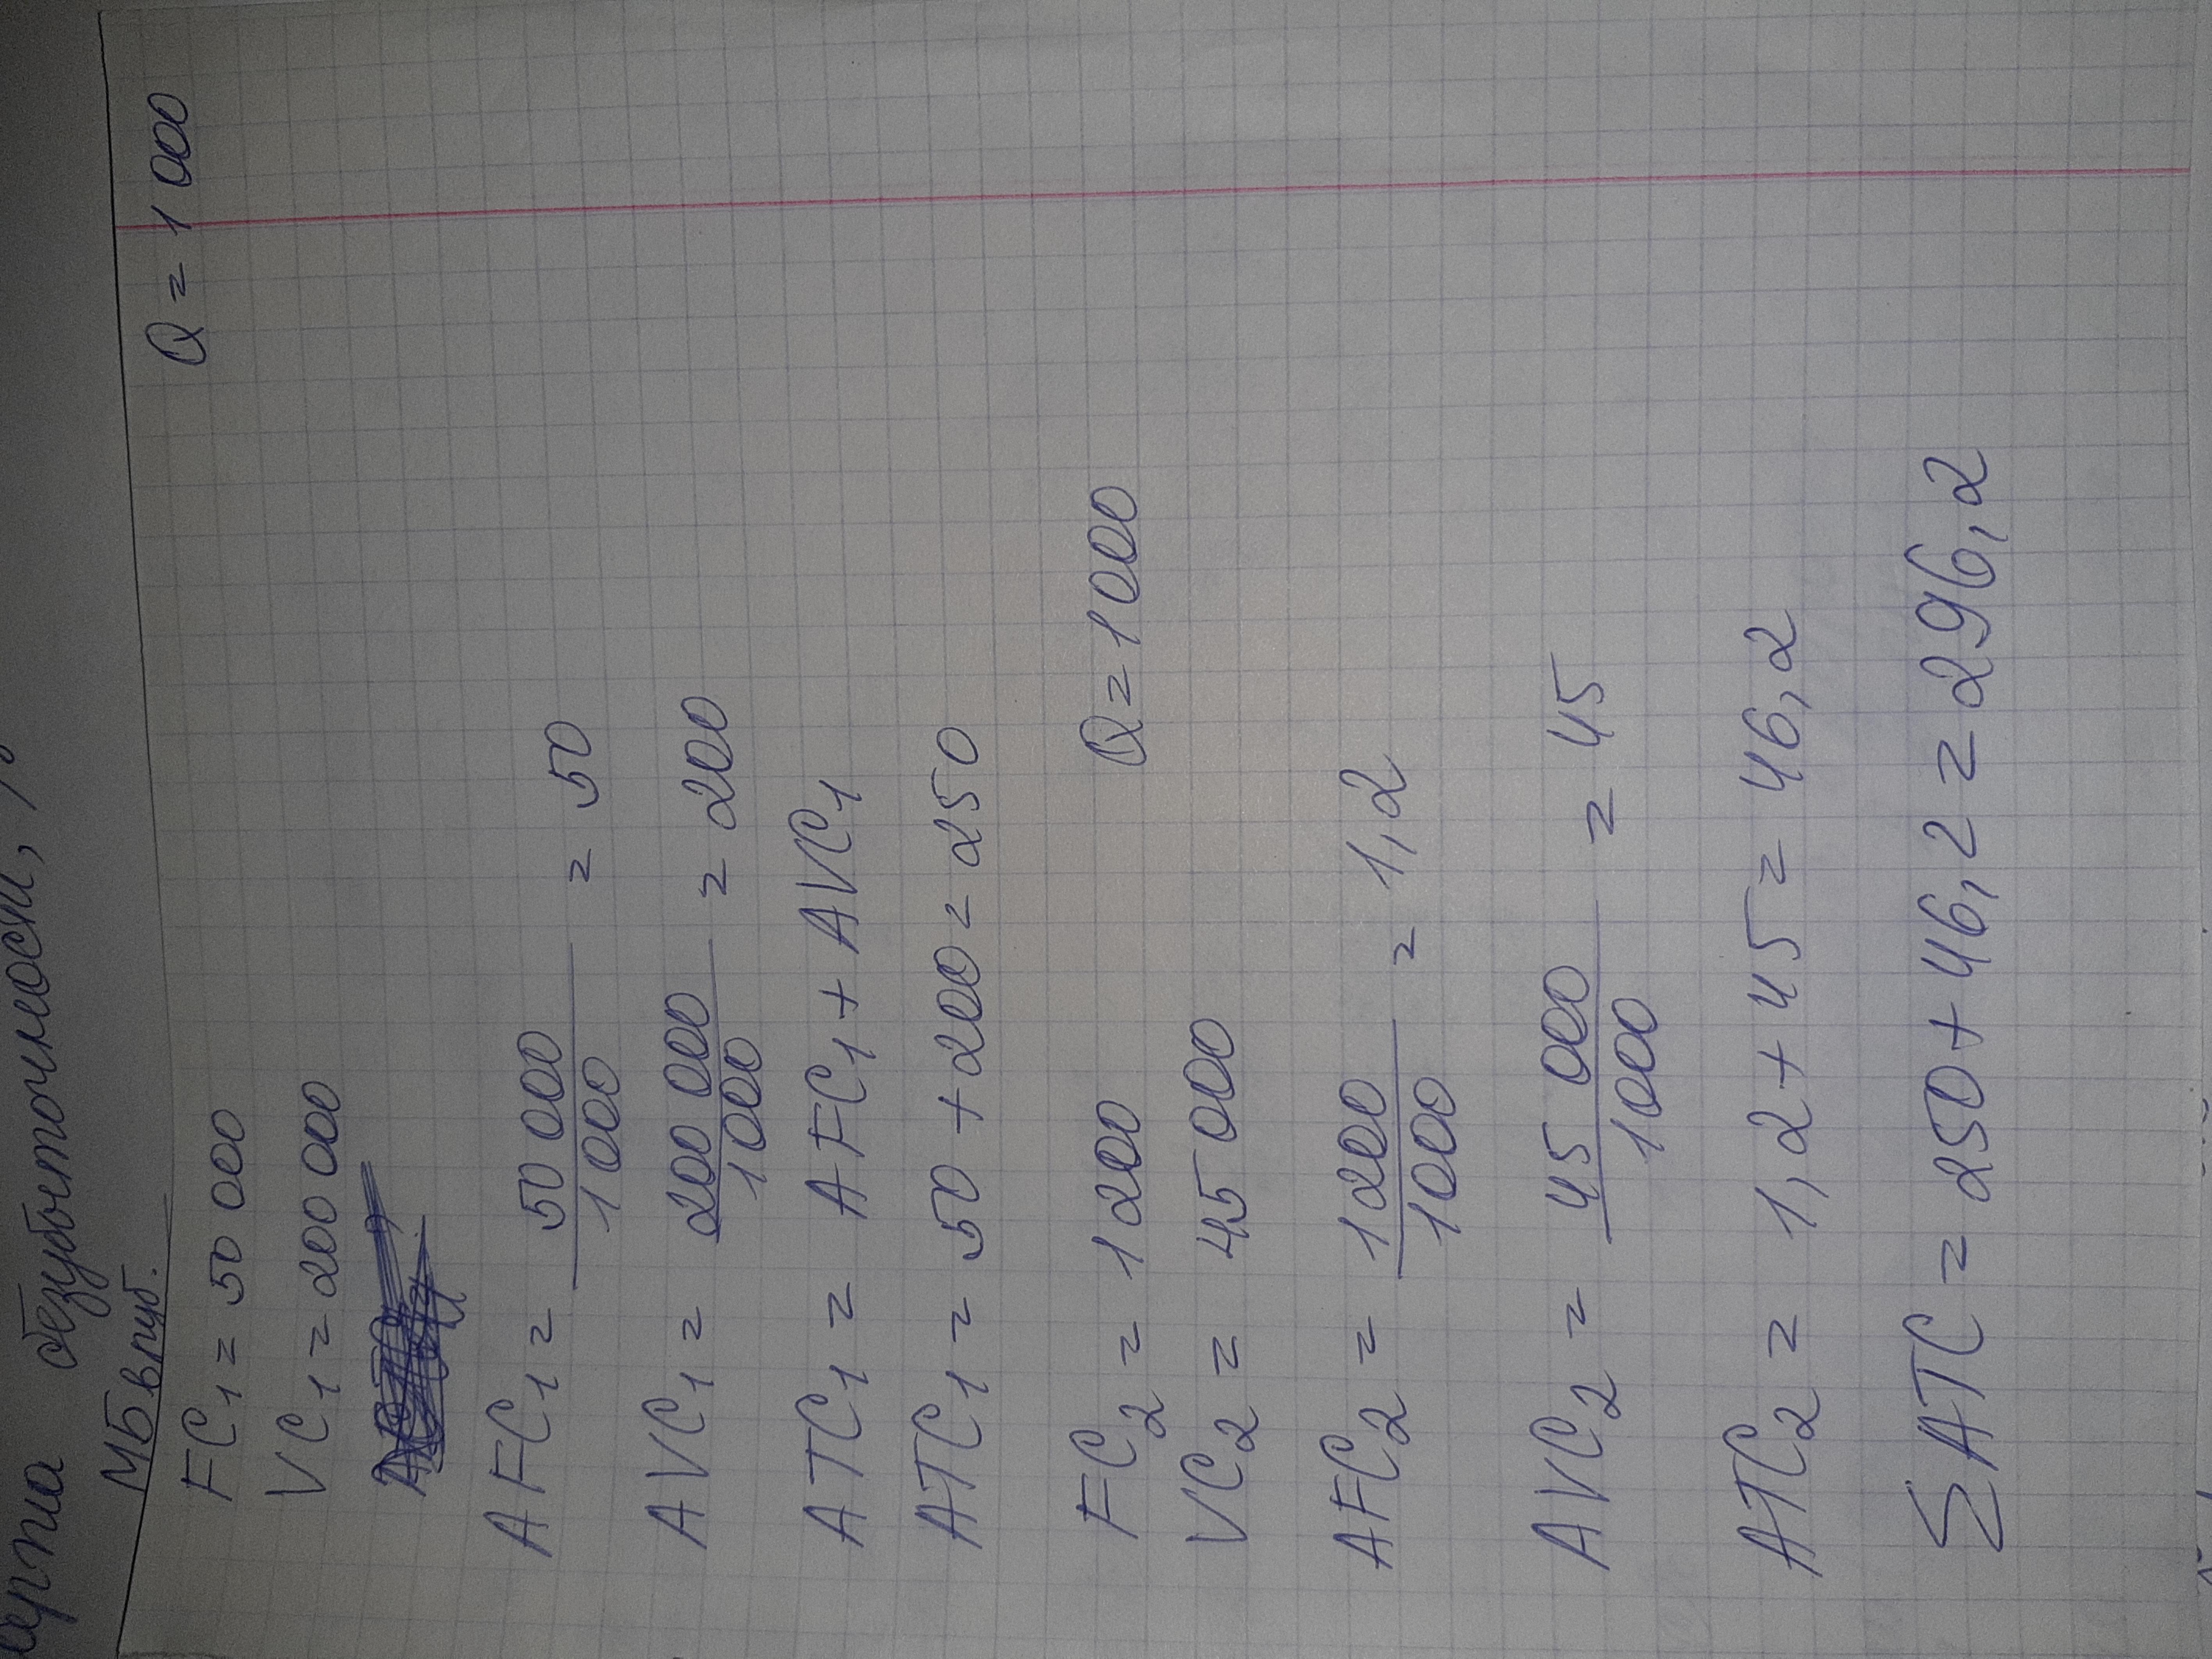 безубыточности,
МБ в руб.
Q = 1 000
FC₁ = 50 000
VC₁ = 200 000
AFC₁ = 50 000 / 1 000 = 50
AVC₁ = 200 000 / 1 000 = 200
ATC₁ = AFC₁ + AVC₁
ATC₁ = 50 + 200 = 250
FC₂ = 1 200 Q = 1 000
VC₂ = 45 000
AFC₂ = 1 200 / 1 000 = 1,2
AVC₂ = 45 000 / 1 000 = 45
ATC₂ = 1,2 + 45 = 46,2
ΣATC = 250 + 46,2 = 296,2